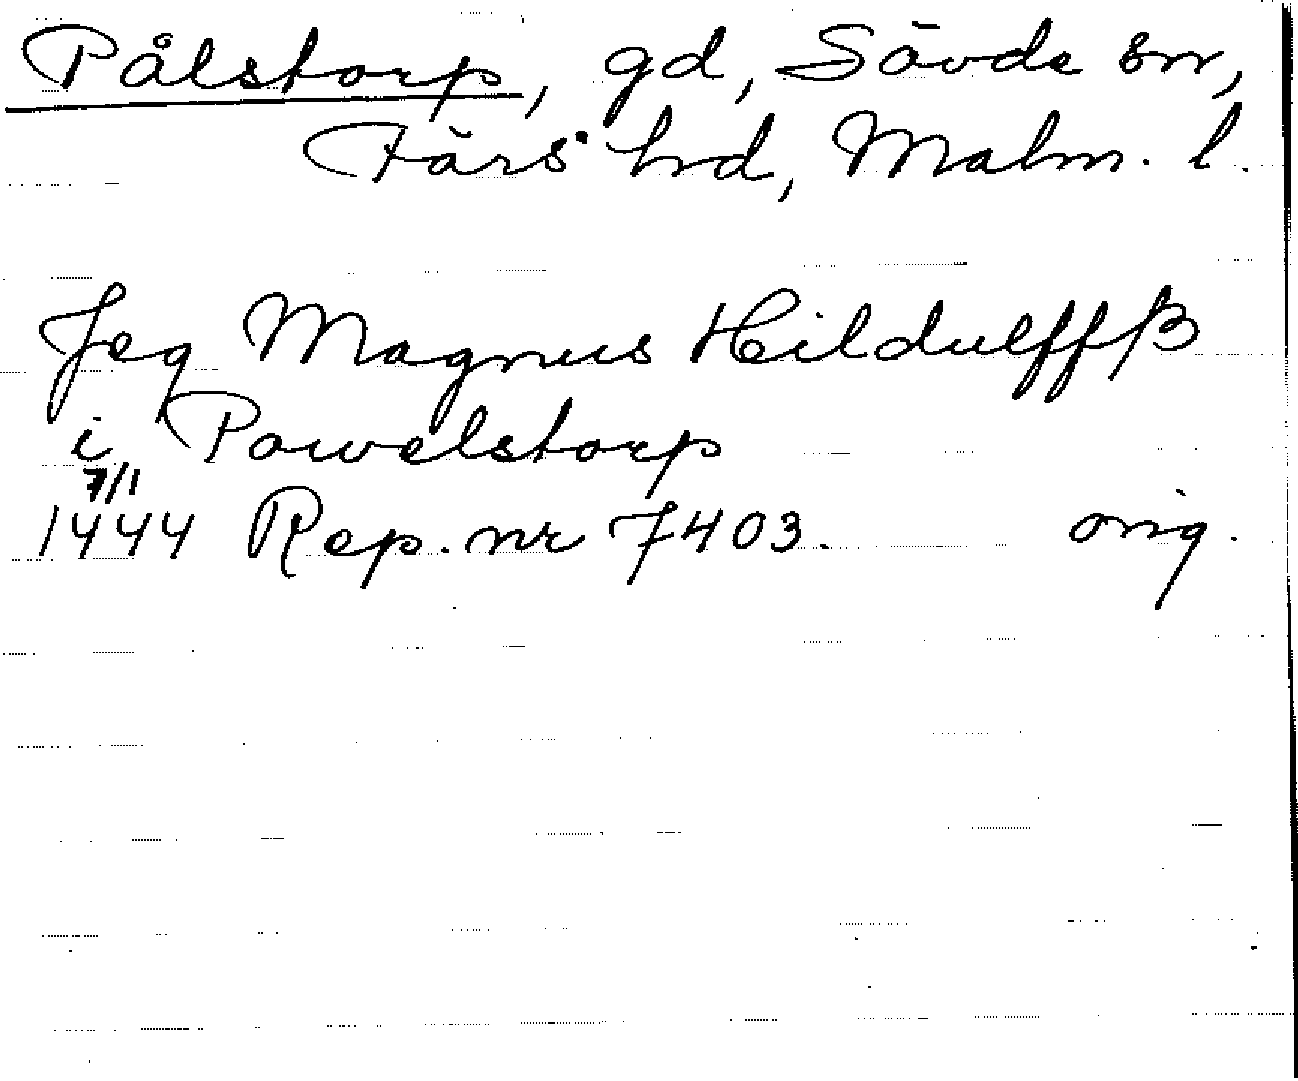 Pålstorp, gd, Sövde sn,
Färs hd, Malm. l.
Jeg Magnus Hildulffß
i Powelstorp
7/1
1444 Rep. nr 7403. orig.